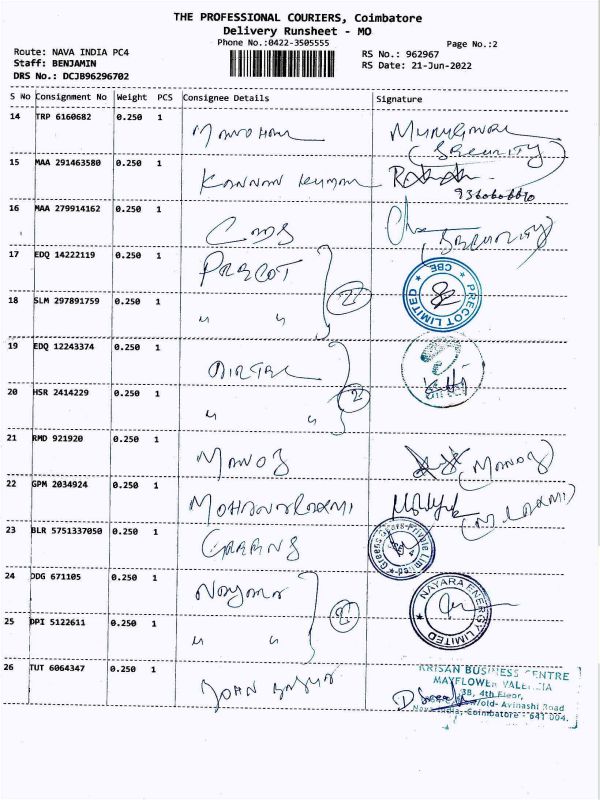 THE PROFESSIONAL COURIERS, Coimbatore
Delivery Runsheet - MO
Phone No.:0422-3505555
Page No.:2
Route: NAVA INDIA PC4
Staff: BENJAMIN
DRS No.: DCJB96296702
RS No.: 962967
RS Date: 21-Jun-2022
S No Consignment No Weight PCS Consignee Details Signature
14 TRP 6160682 0.250 1 MANOHAR
(SECURITY)
15 MAA 291463580 0.250 1 KANNAN KUMAR
16 MAA 279914162 0.250 1
(SECURITY)
17 EDQ 14222119 0.250 1 PRECOT
PRECOT LIMITED CBE
18 SLM 297891759 0.250 1 " " 2
19 EDQ 12243374 0.250 1 AIRTEL
20 HSR 2414229 0.250 1 " " 2
21 RMD 921920 0.250 1 MANOJ (MANOJ)
22 GPM 2034924 0.250 1
23 BLR 5751337050 0.250 1 GREENS
24 DDG 671105 0.250 1 Nayara
NAYARA ENERGY LIMITED
25 DPI 5122611 0.250 1 " " 2
26 TUT 6064347 0.250 1
KRISAN BUSINESS CENTRE
MAYFLOWER VALENCIA
3B, 4th Floor,
Avinashi Road
Nava India, Coimbatore - 641 004.